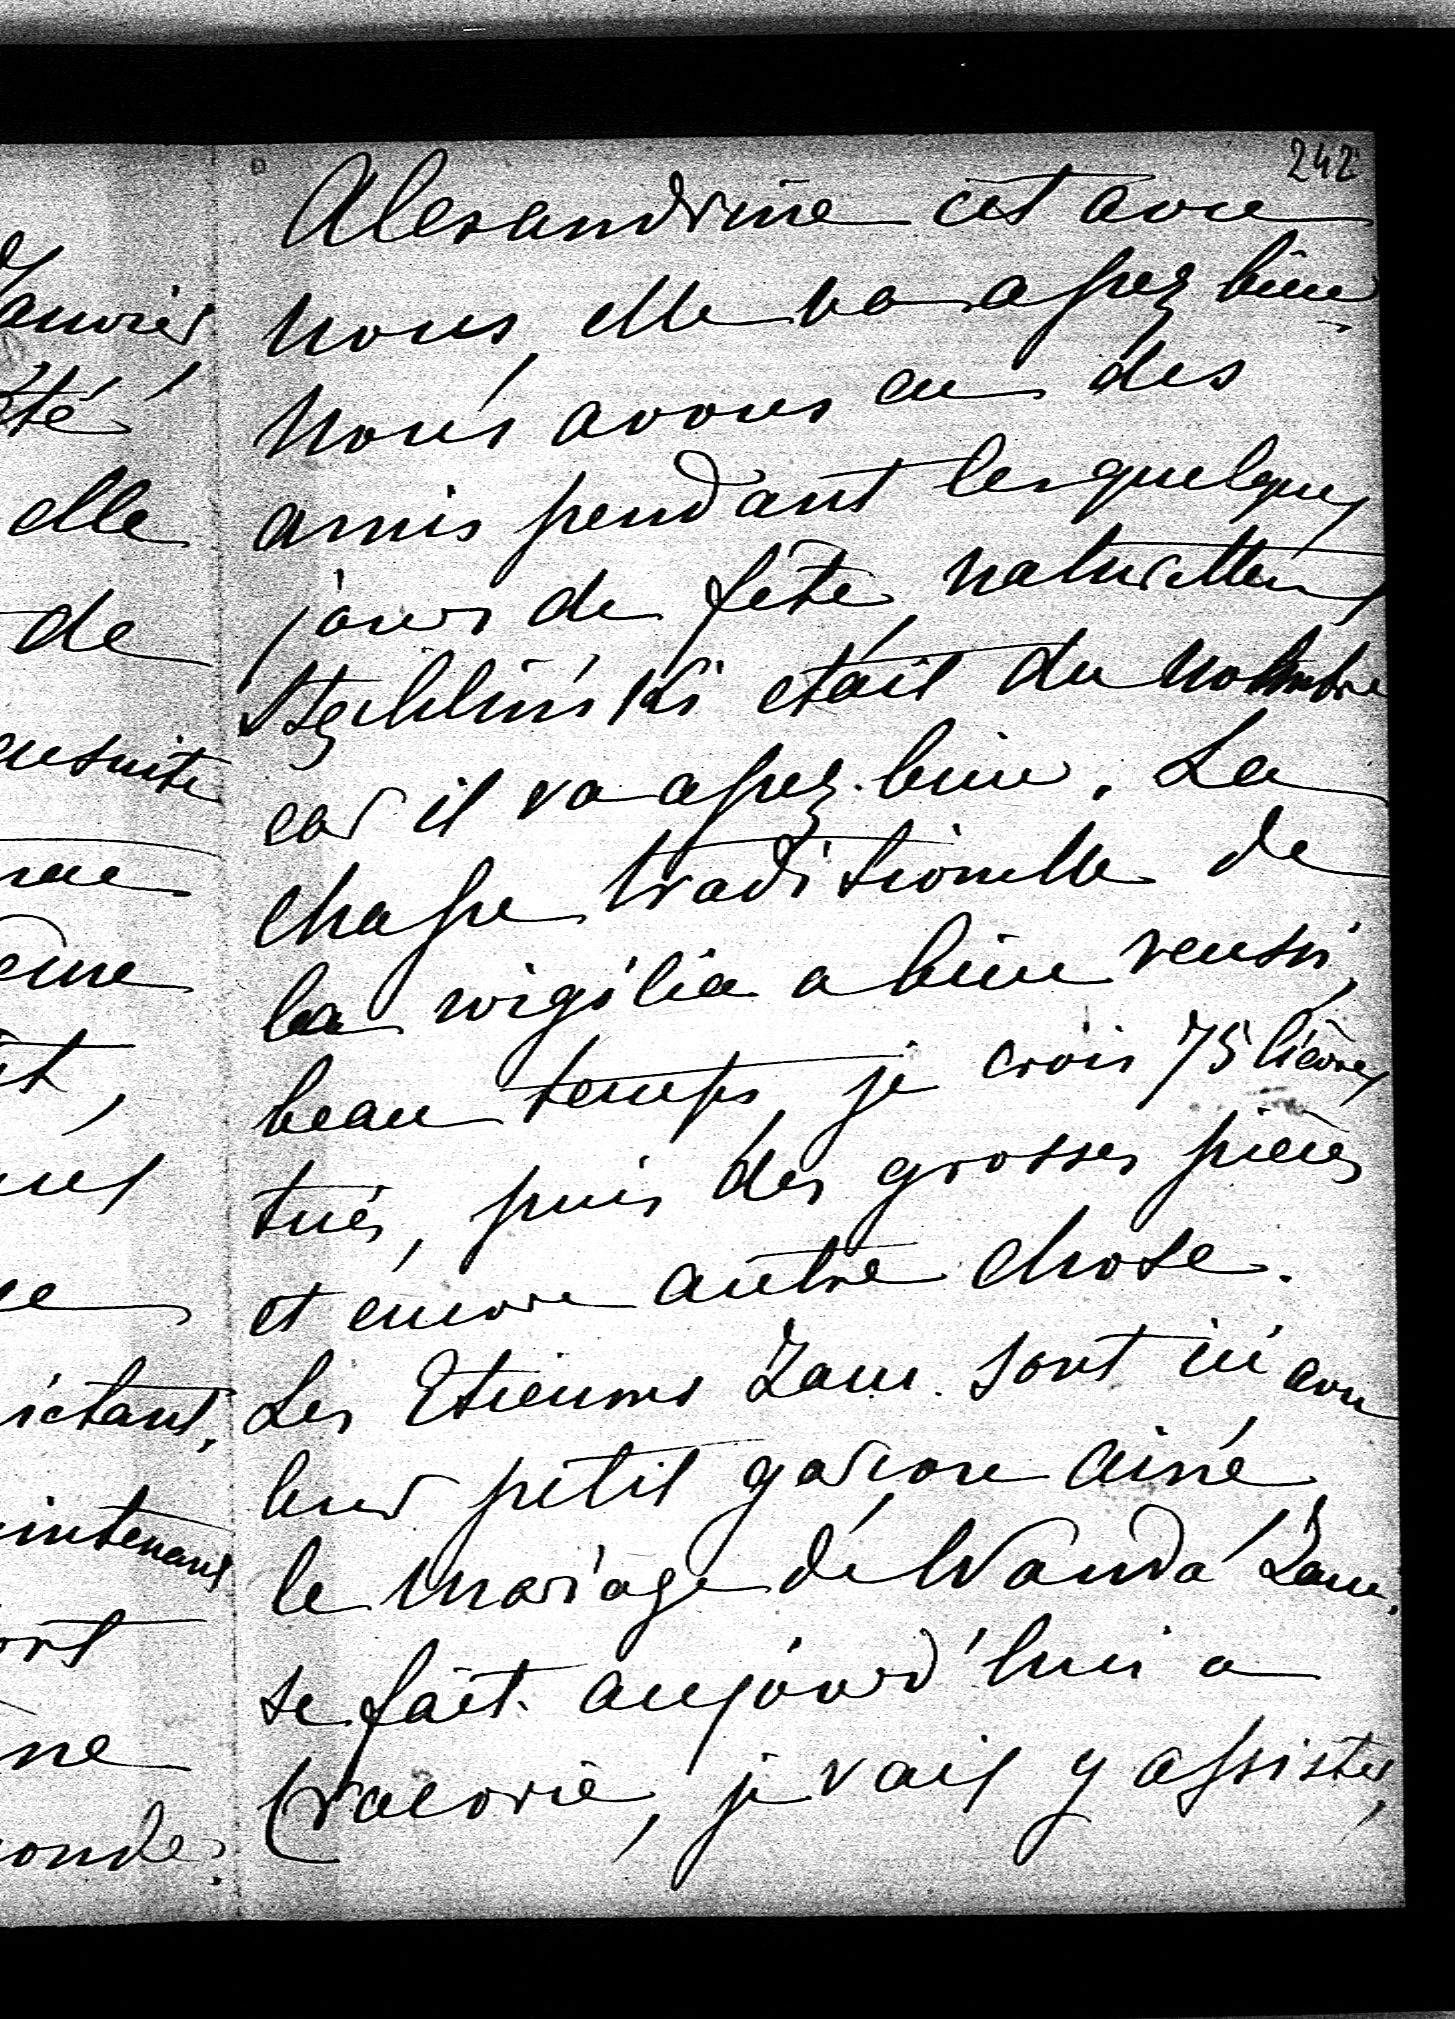 242
Alexandrine est avec
nous, elle va assez bien,
nous avons eu des
amis pendant les quelques
jours de fête, naturellem
était du nombre
car il va assez bien. La
chasse traditionelle de
la wigilia a bien reussi,
beau temps, je crois 75 lièvres
tués, puis des grosses pièces
et encore autre chose.
Les Etiennes Zam. sont ici avec
leur petit garcon ainé,
le mariage de Wanda Zam.
se fait aujourd'hui a
Cracovie, je vais y assister,
Janvier
été
elle
de
ensuite
eme
intenant
ne
onde.